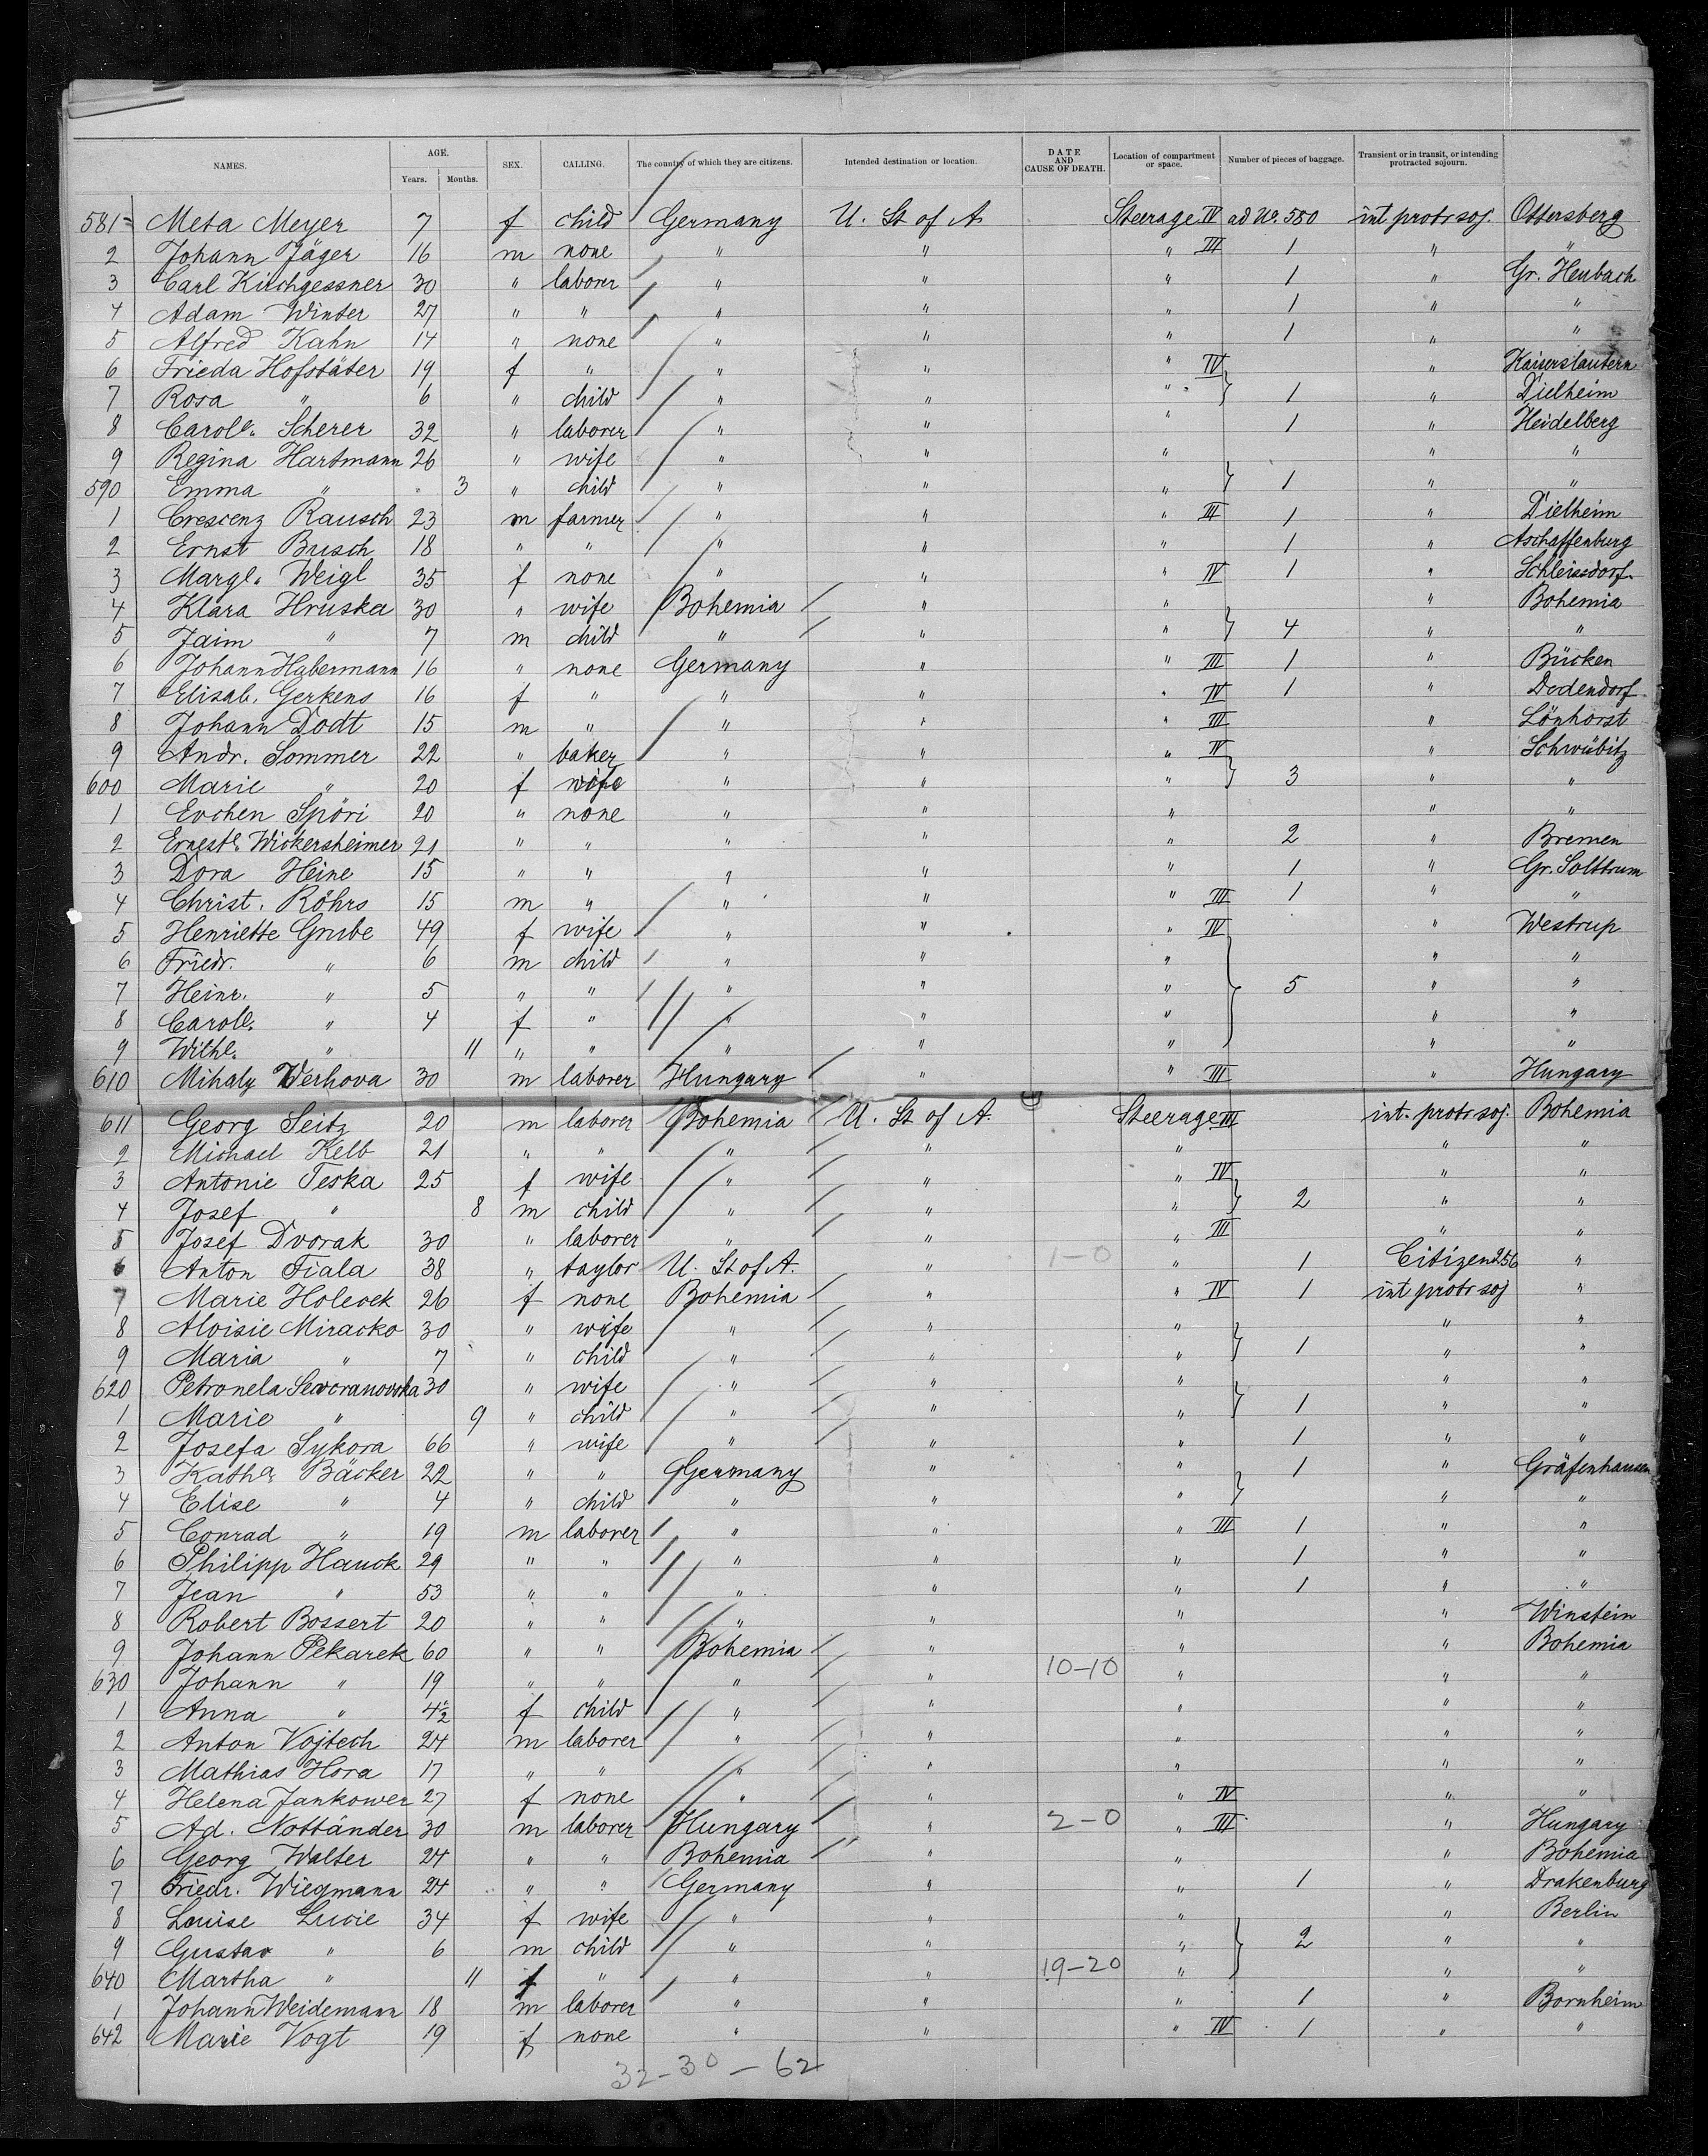 NAMES. AGE. Years. Months. SEX. CALLING. The country of which they are citizens. Intended destination or location. DATE AND CAUSE OF DEATH. Location of compartment or space. Number of pieces of baggage. Transient or in transit, or intending protracted sojourn.
581 Meta Meyer 7 f child Germany U. St of A. Steerage IV ad No. 580 int protr soj. Ottersberg
2 Johann Jäger 16 m none " " " III 1 " "
3 Carl Kirchgessner 30 " laborer " " " 1 " Gr. Heubach
4 Adam Winter 27 " " " " " 1 " "
5 Alfred Kahn 14 " none " " " 1 " "
6 Frieda Hofstäter 19 f " " " " IV " Kaiserslautern
7 Rosa " 6 " child " " " } 1 " Dielheim
8 Carole. Scherer 32 " laborer " " " 1 " Heidelberg
9 Regina Hartmann 26 " wife " " " " "
590 Emma " " 3 " child " " " } 1 " "
1 Crescenz Rausch 23 m farmer " " " III 1 " Dielheim
2 Ernst Busch 18 " " " " " 1 " Aschaffenburg
3 Margl. Weigl 35 f none " " " IV 1 " Schleissdorf
4 Klara Hruska 30 " wife Bohemia " " " Bohemia
5 Jaim " 7 m child " " " } 4 " "
6 Johann Habermann 16 " none Germany " " III 1 " Bücken
7 Elisab. Gerkens 16 f " " " " IV 1 " Dodendorf
8 Johann Dodt 15 m " " " " III " Lönhorst
9 Andr. Sommer 22 " baker " " " IV " Schwübitz
600 Marie " 20 f wife " " " } 3 " "
1 Evchen Spöri 20 " none " " " " "
2 Erneste. Wickersheimer 21 " " " " " 2 " Bremen
3 Dora Heine 15 " " " " " 1 " Gr. Solttrum
4 Christ. Röhrs 15 m " " " " III 1 " "
5 Henriette Grube 49 f wife " " " IV " Westrup
6 Friedr. " 6 m child " " " " "
7 Heinr. " 5 " " " " " } 5 " "
8 Carole. " 4 f " " " " " "
9 Wilhe. " 11 " " " " " " "
610 Mihaly Werhova 30 m laborer Hungary " " III " Hungary
611 Georg Seitz 20 m laborer Bohemia U. St of A. Steerage III int. protr soj. Bohemia
2 Michael Kelb 21 " " " " " " "
3 Antonie Teska 25 f wife " " " IV " "
4 Josef " 8 m child " " " } 2 " "
5 Josef Dvorak 30 " laborer " " " III " "
6 Anton Fiala 38 " taylor U. St of A. " 1-0 " 1 Citizen 256 "
7 Marie Holecek 26 f none Bohemia " " IV 1 int protr soj "
8 Aloisie Miracko 30 " wife " " " " "
9 Maria " 7 " child " " " } 1 " "
620 Petronela 30 " wife " " " " "
1 Marie " 9 " child " " " } 1 " "
2 Josefa Sykora 66 " wife " " " 1 " "
3 Katha. Bäcker 22 " " Germany " " 1 " Gräfenhausen
4 Elise " 4 " child " " " } " "
5 Conrad " 19 m laborer " " " III 1 " "
6 Philipp Hauck 29 " " " " " 1 " "
7 Jean " 53 " " " " " 1 " "
8 Robert Bossert 20 " " " " " " Winstein
9 Johann Pekarek 60 " " Bohemia " " " Bohemia
630 Johann " 19 " " " " 10-10 " " "
1 Anna " 4½ f child " " " " "
2 Anton Vojtech 24 m laborer " " " " "
3 Mathias Hora 17 " " " " " " "
4 Helena Jankower 27 f none " " " IV " "
5 Ad. Nottänder 30 m laborer Hungary " 2-0 " III " Hungary
6 Georg Walter 24 " " Bohemia " " " Bohemia
7 Friedr. Wiegmann 24 " " Germany " " 1 " Drakenburg
8 Louise Lucie 34 f wife " " " " Berlin
9 Gustav " 6 m child " " " } 2 " "
640 Martha " 11 f " " " 19-20 " " "
1 Johann Weidemann 18 m laborer " " " 1 " Bornheim
642 Marie Vogt 19 f none " " " IV 1 " "
32-30-62